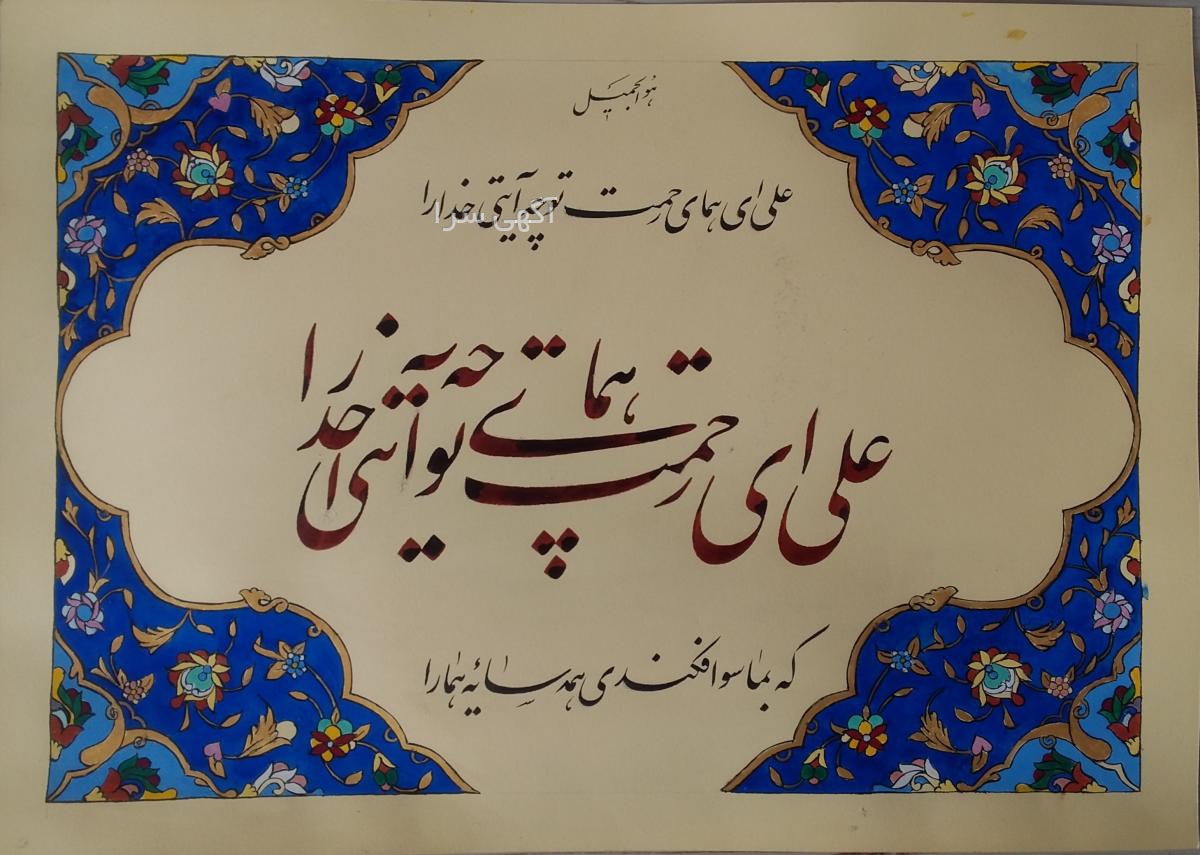 هو الجمیل
علی ای همای رحمت تو چه آیتی خدا را
آگهی سرا
علی ای همای رحمت تو چه آیتی خدا را
که بماسوا فکندی همه سایهٔ هما را